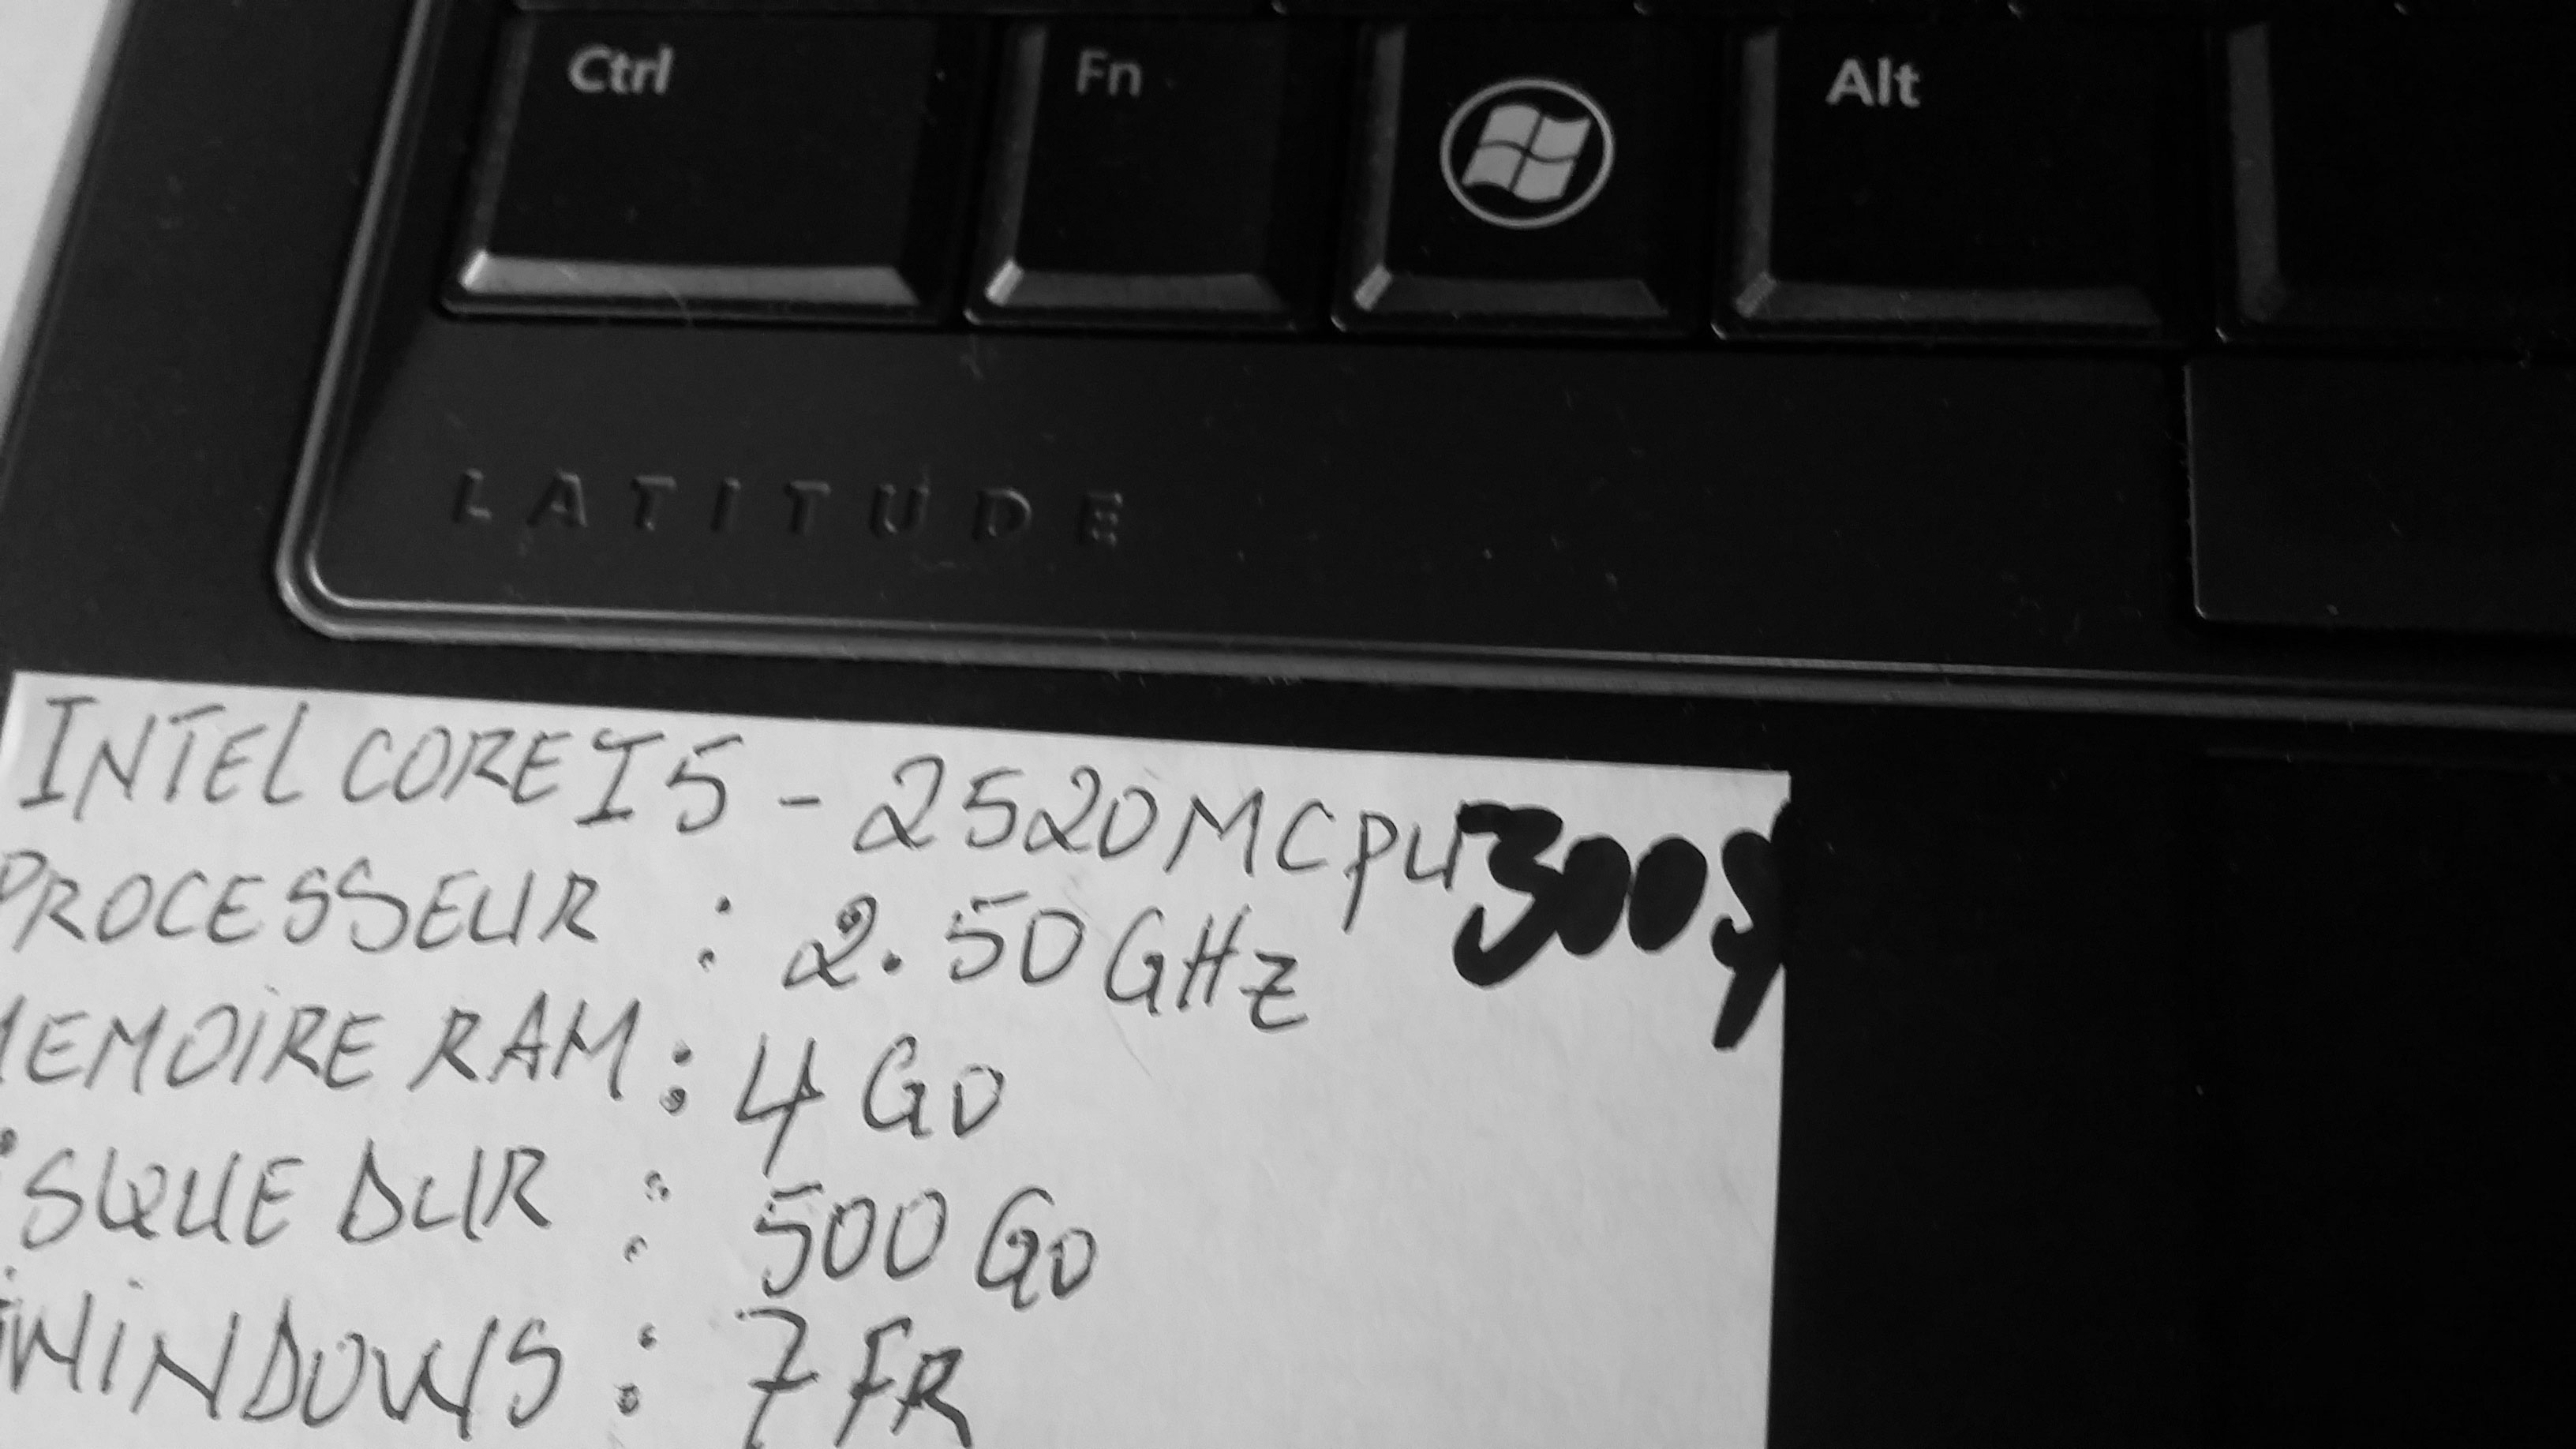 Ctrl Fn Alt
LATITUDE
INTEL CORE I5 - 2520M CPU 300$
PROCESSEUR : 2.50 GHz
MEMOIRE RAM : 4 Go
ISQUE DUR : 500 Go
WINDOWS : 7 FR